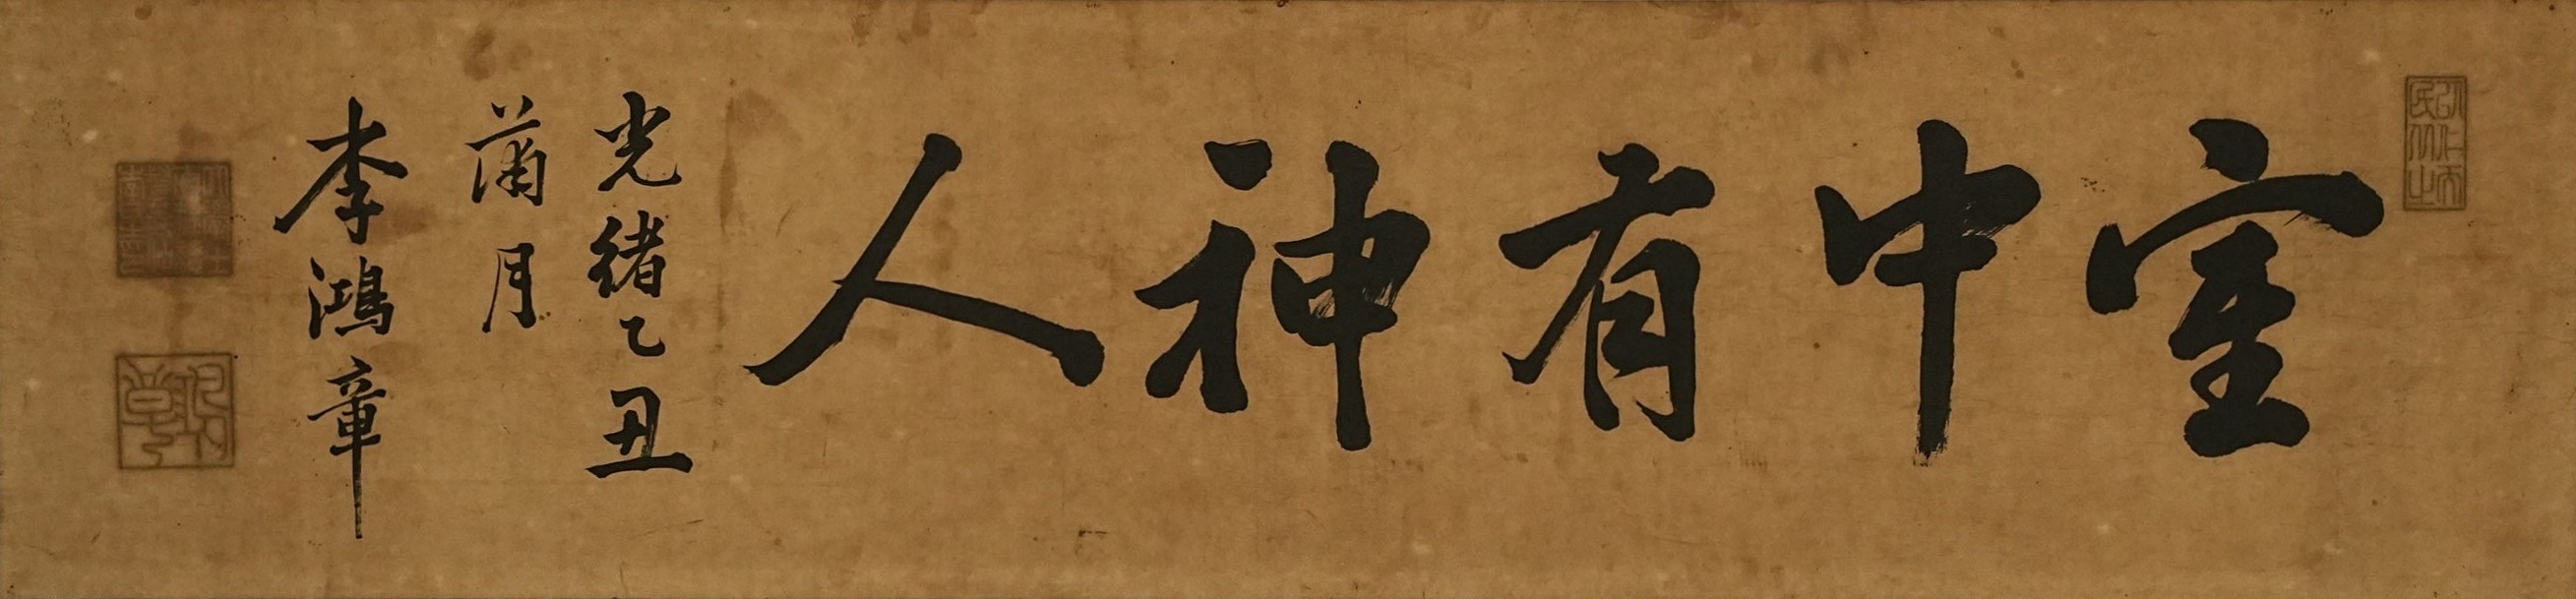 室中有神人
光緒乙丑
蒲月
李鴻章